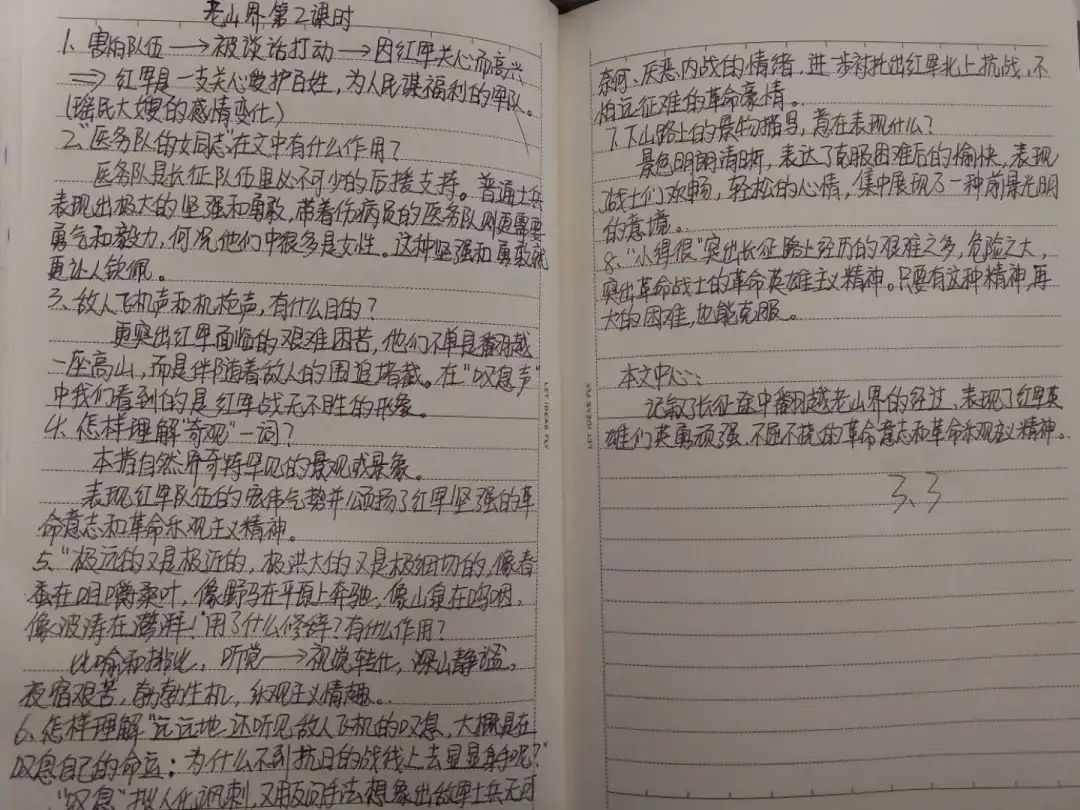 老山界第2课时
1、害怕队伍→被谈话打动→因红军关心而高兴
⇒红军是一支关心爱护百姓，为人民谋福利的军队。
(瑶民大嫂的感情变化)
2、"医务队的女同志"在文中有什么作用？
医务队是长征队伍里必不可少的后援支持。普通士兵
表现出极大的坚强和勇敢，带着伤病员的医务队则更需要
勇气和毅力，何况他们中很多是女性。这种坚强和勇敢就
更让人钦佩。
3、敌人飞机声和机枪声，有什么目的？
更突出红军面临的艰难困苦，他们不单是翻越
一座高山，而是伴随着敌人的围追堵截。在"叹息声"
中我们看到的是红军战无不胜的形象。
4、怎样理解"奇观"一词？
本指自然界奇特罕见的景观或景象。
表现红军队伍的宏伟气势并颂扬了红军坚强的革
命意志和革命乐观主义精神。
5、"极远的又是极近的，极洪大的又是极细切的，像春
蚕在咀嚼桑叶，像野马在平原上奔驰，像山泉在呜咽，
像波涛在澎湃！"用了什么修辞？有什么作用？
比喻和排比，听觉→视觉转化，深山静谧，
夜宿艰苦，勃勃生机，乐观主义情趣。
6、怎样理解"远远地还听见敌人飞机的叹息，大概是在
叹息自己的命运：为什么不到抗日的战线上去显显身手呢？"
"叹息"拟人化讽刺，又用反问手法想象出敌军士兵无可
奈何、厌恶内战的情绪，进一步衬托出红军北上抗战，不
怕远征难的革命豪情。
7、下山路上的景物描写，意在表现什么？
景色明朗清晰，表达了克服困难后的愉快，表现
战士们欢畅，轻松的心情，集中展现了一种前景光明
的意境。
8、"小得很"突出长征路上经历的艰难之多，危险之大，
突出革命战士的革命英雄主义精神。只要有这种精神，再
大的困难，也能克服。
本文中心：
记叙了长征途中翻越老山界的经过，表现了红军英
雄们英勇顽强、不屈不挠的革命意志和革命乐观主义精神。
3、3
LET IDEAS FLY
LET IDEAS FLY